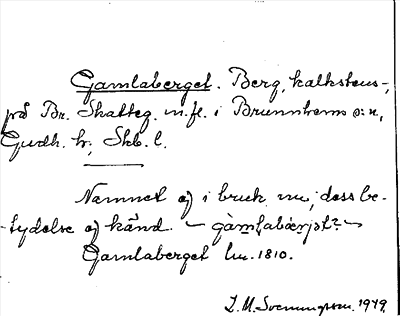 Gamlaberget. Berg, kalkstens-,
på Br. Skatteg. m.fl. i Brunnhems s:n,
Gudh. h., Skb. l.
Namnet ej i bruk nu; dess be-
tydelse ej känd. — gàmlabærjət² —
Gamlaberget lm. 1810.
I. M. Svenungsson. 1979.